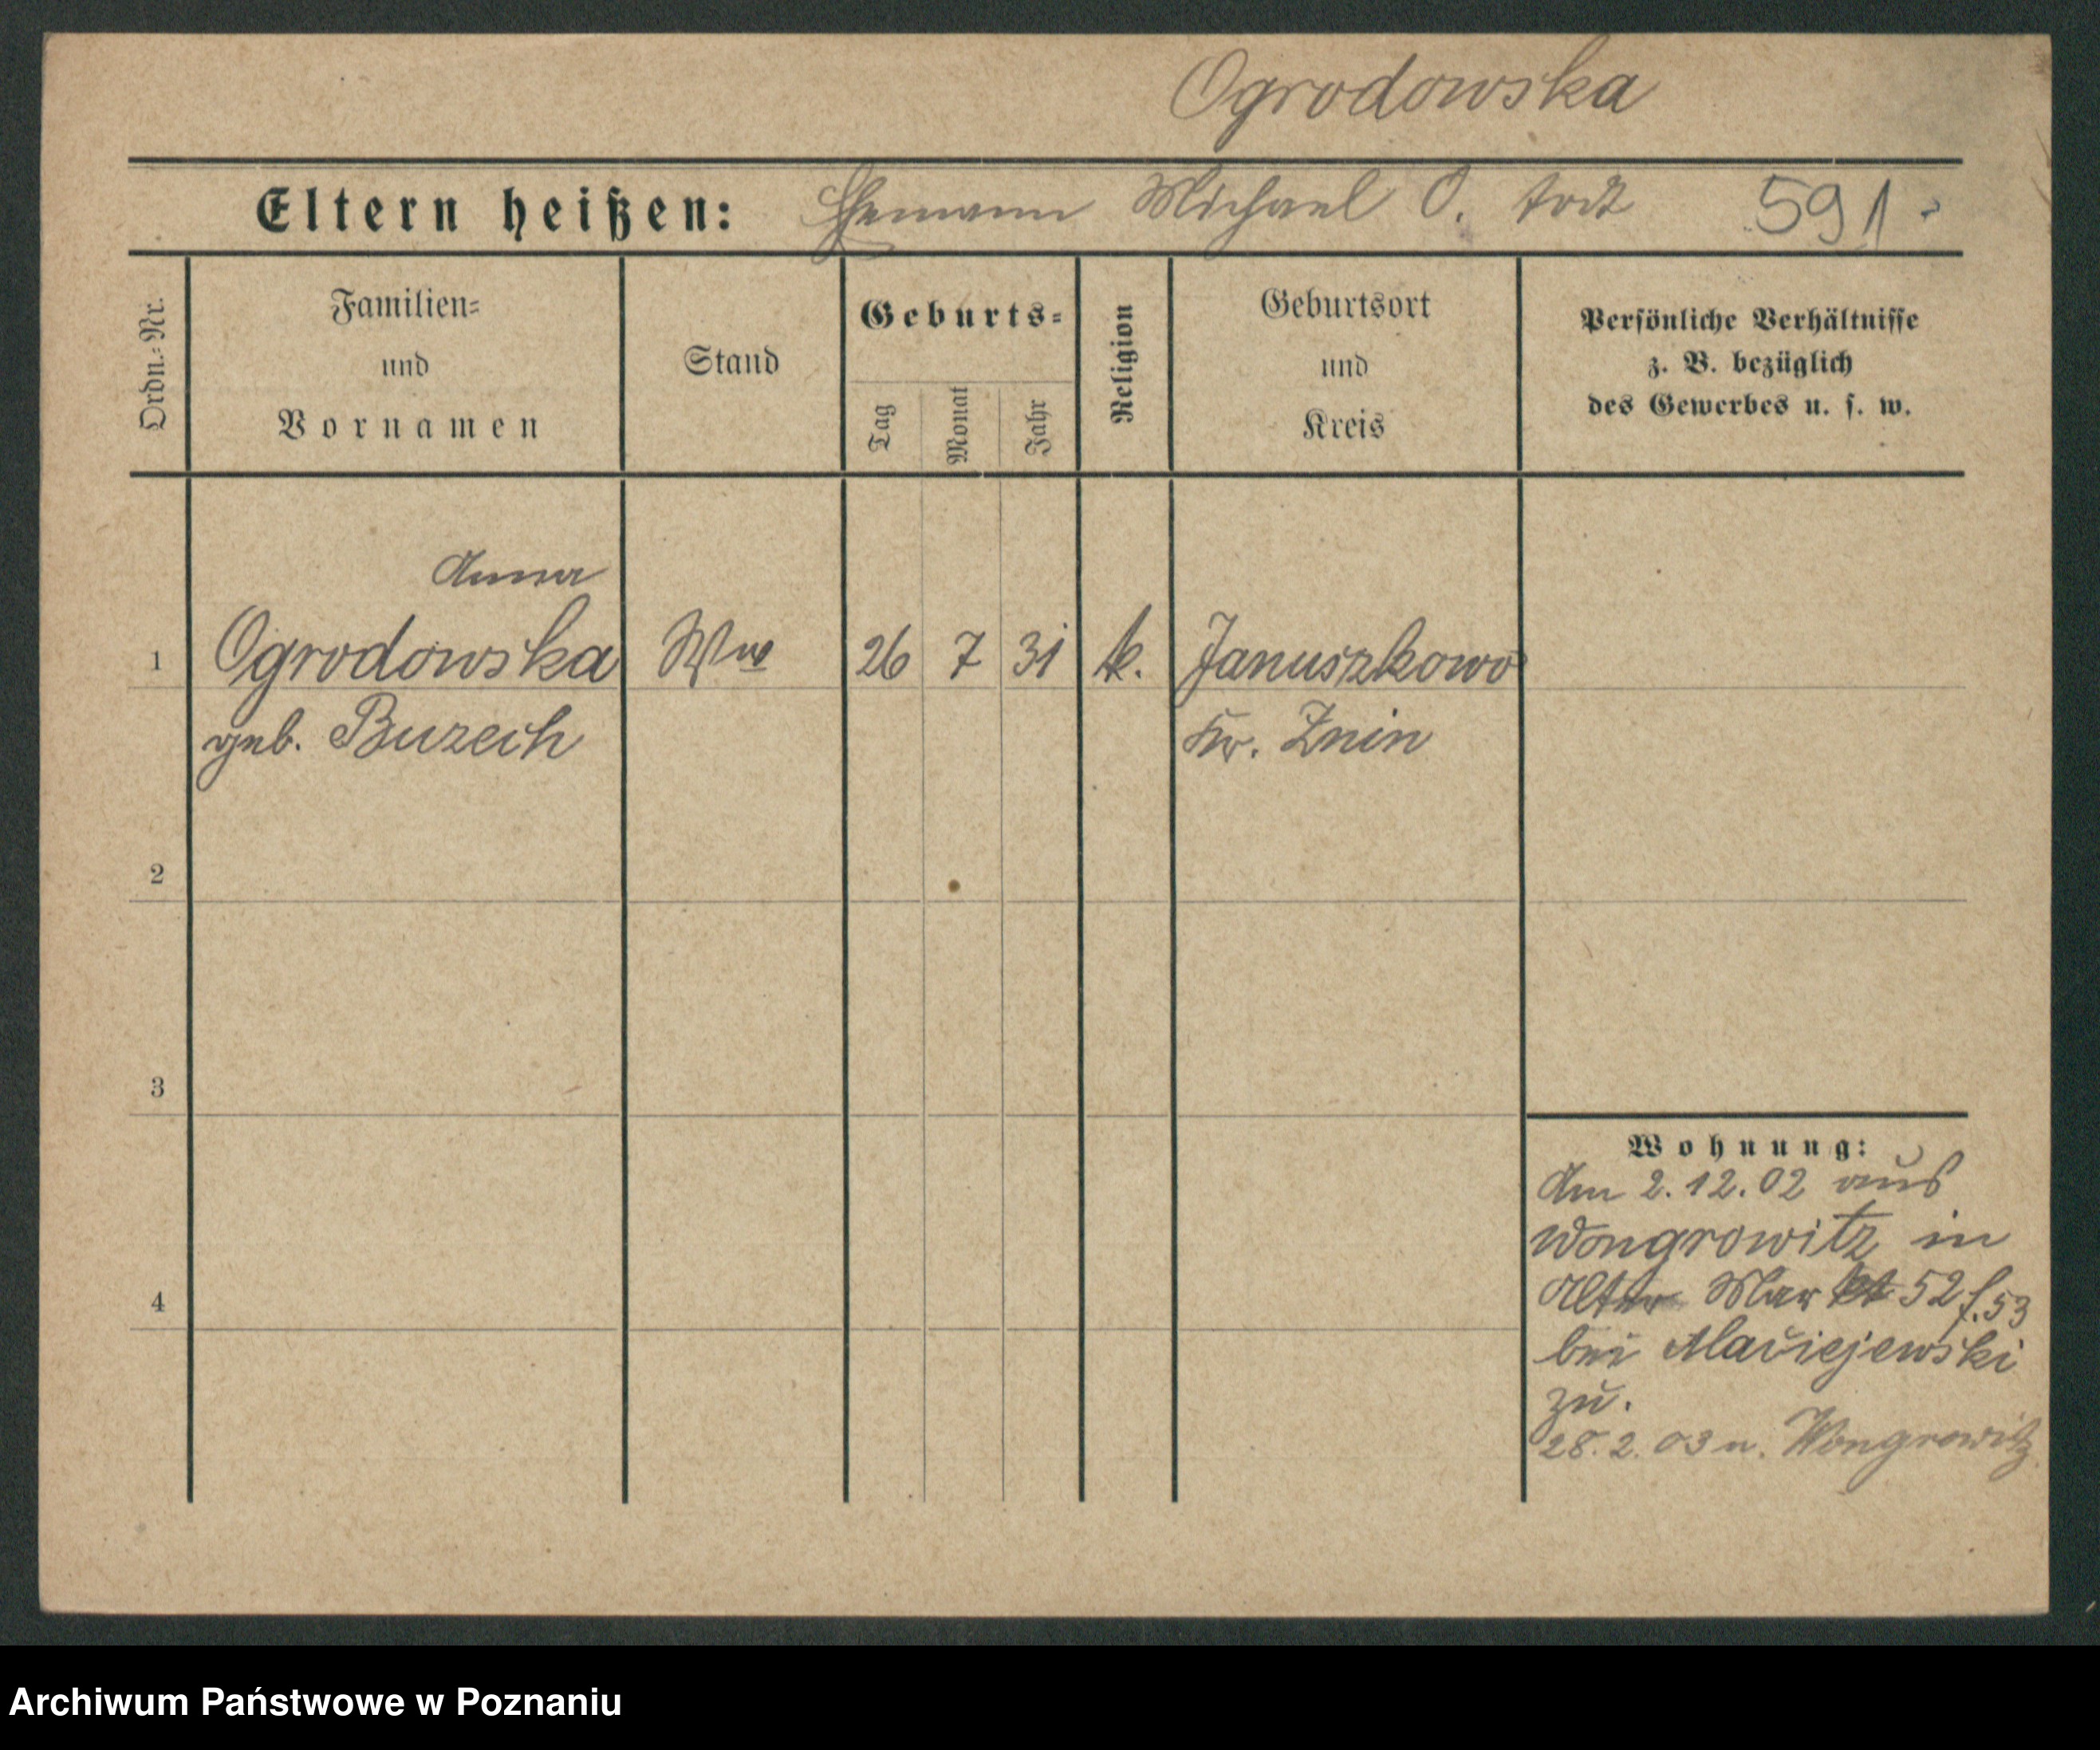 Ogrodowska
Eltern heißen: Ehemann Michael O. todt 591
Ordn.=Nr.
Familien=
und
Vornamen
Stand
Geburts=
Tag
Monat
Jahr
Religion
Geburtsort
und
Kreis
Persönliche Verhältnisse
z. B. bezüglich
des Gewerbes u. s. w.
Anna
1 Ogrodowska Ww 26 7 31 k. Januszkowo
geb. Buzech Kr. Znin
2
3
4
Wohnung:
Am 2.12.02 aus
Wongrowitz in
Alter Markt 52 f. 53
bei Maciejewski
zu.
28.2.03 n. Wongrowitz
Archiwum Państwowe w Poznaniu